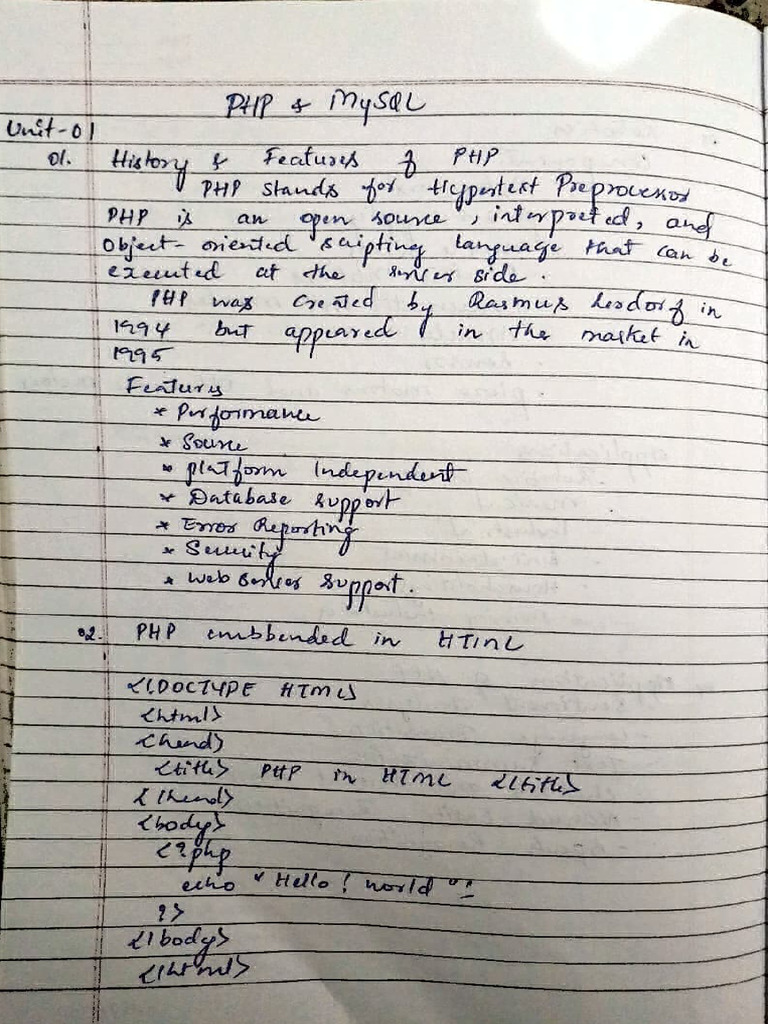 PHP & MySQL
Unit-01
01. History & Features of PHP
PHP stands for Hypertext Preprocessor
PHP is an open source, interpreted, and
Object-oriented scripting language that can be
executed at the server side.
PHP was created by Rasmus Lerdorf in
1994 but appeared in the market in
1995
Features
* Performance
* Source
* platform Independent
* Database support
* Error Reporting
* Security
* Web server support.
02. PHP embbended in HTML
<!DOCTYPE HTML>
<html>
<head>
<title> PHP in HTML </title>
</head>
<body>
<?php
echo "Hello! world";
?>
</body>
</html>